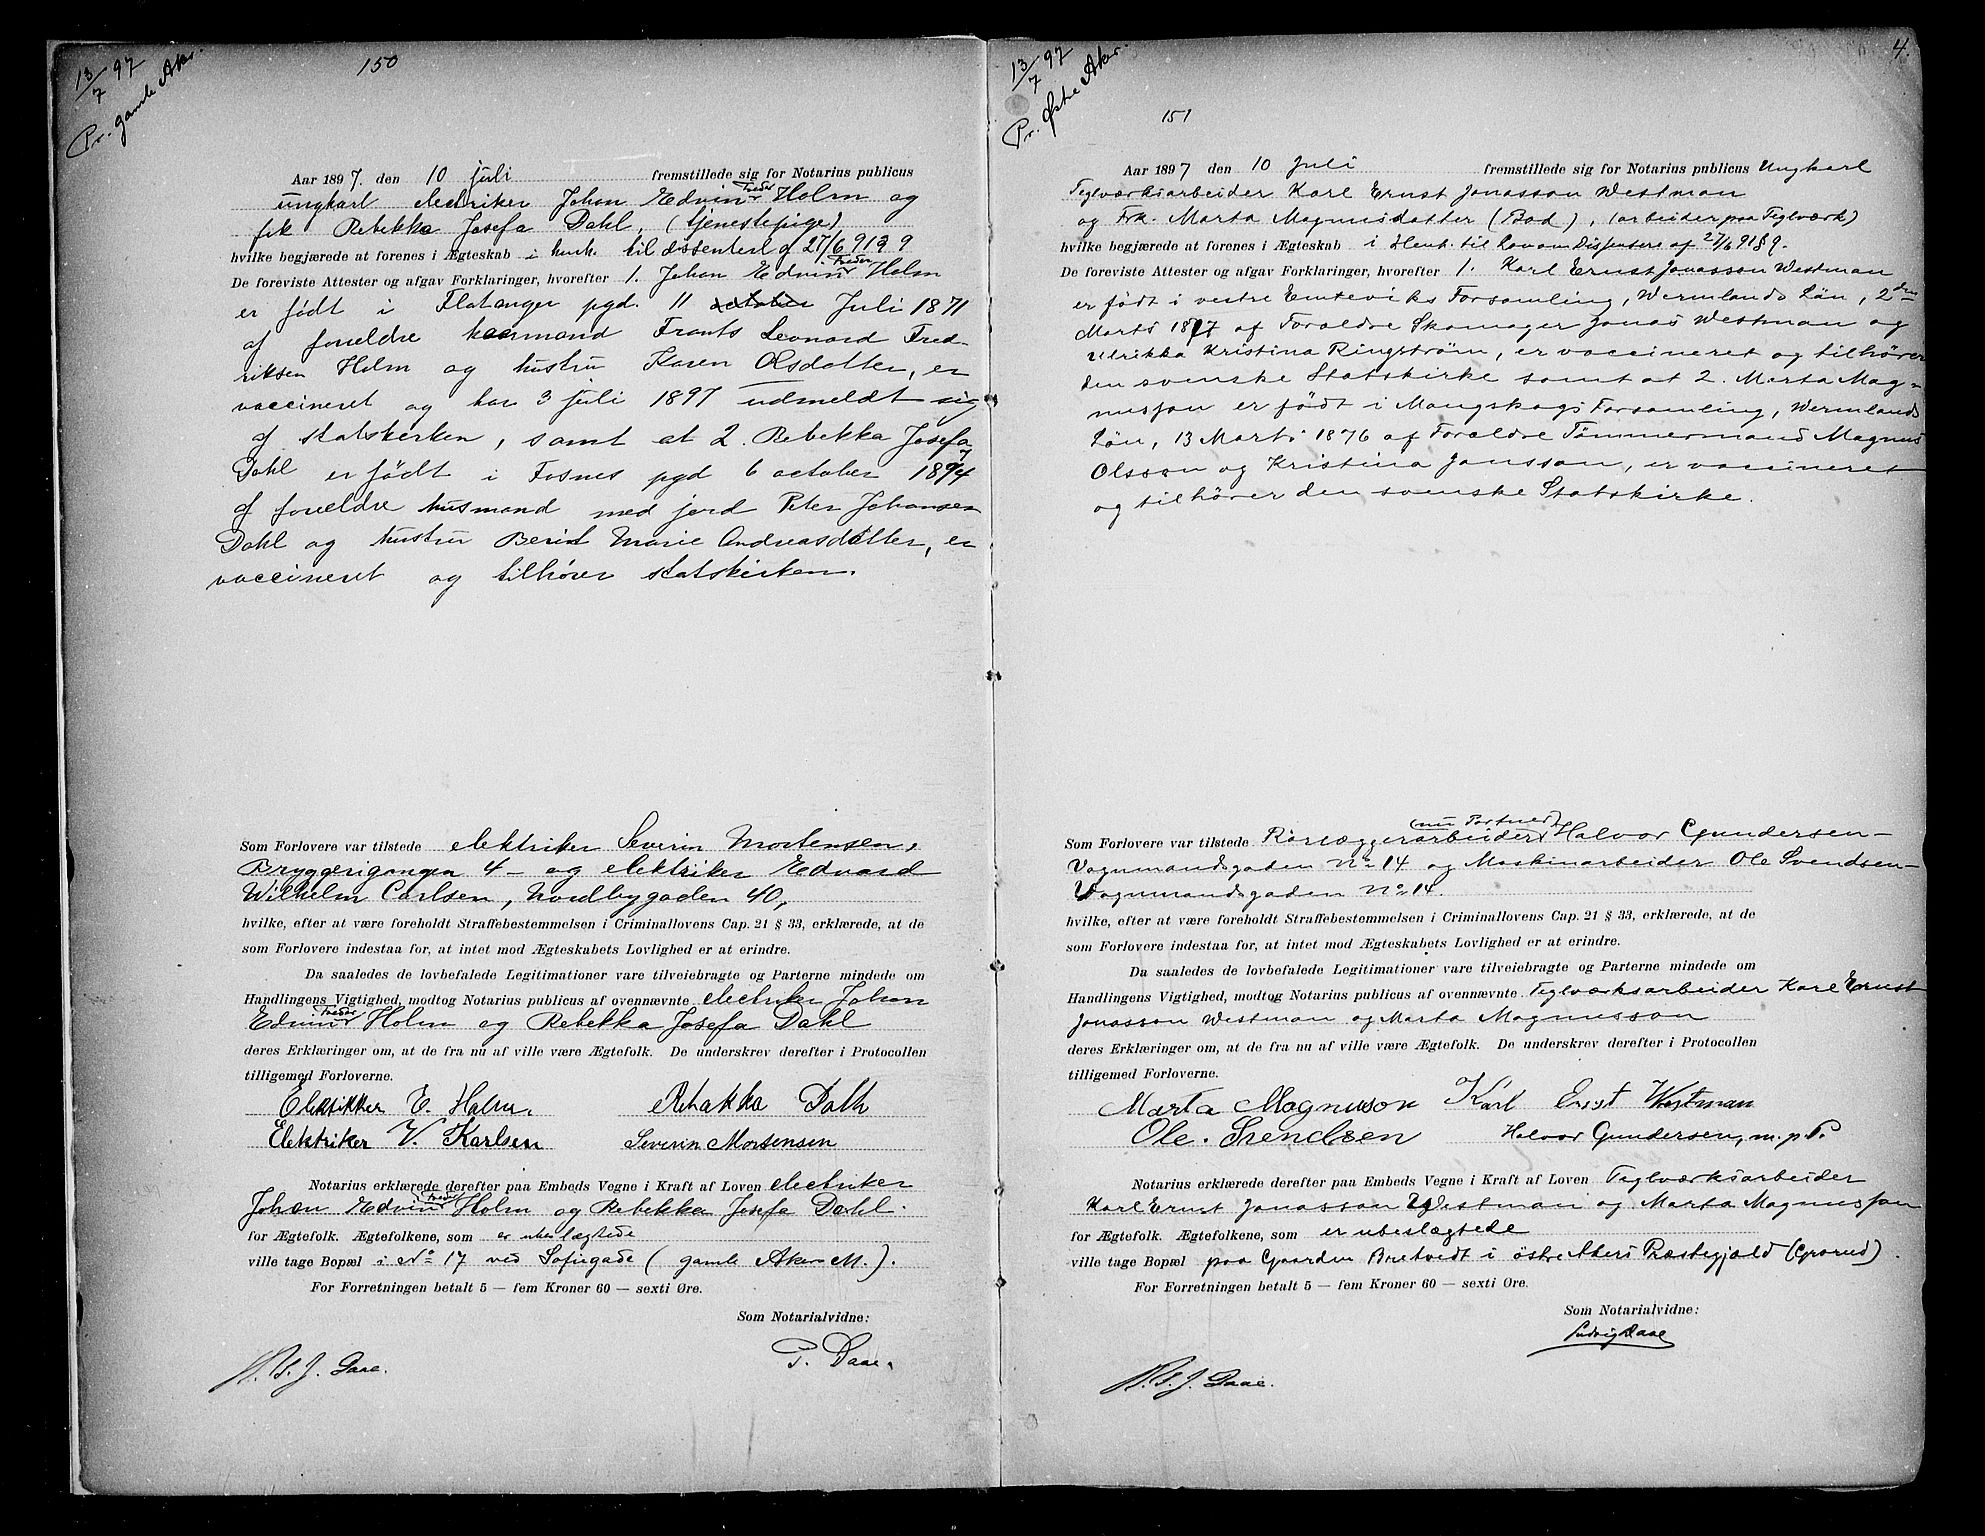 13/7 97
Pr. gamle Aker.
150
Aar 1897. den 10 juli fremstillede sig for Notarius publicus
ungkarl electriker Johan Edvin Freder Holm og
frk Rebekka Josefa Dahl, (tjenestepige)
hvilke begjærede at forenes i Ægteskab i henh. til dissenterl af 27/6 91 § 9
De foreviste Attester og afgav Forklaringer, hvorefter 1. Johan Edvin Freder Holm
er født i Flatanger pgd. 11 october Juli 1871
af forældre husmand Frants Leonard Fred-
riksen Holm og hustru Karen Olsdatter, er
vaccineret og har 3 juli 1897 udmeldt sig
af statskirken, samt at 2. Rebekka Josefa
Dahl er født i Fosnes pgd 6 october 1874
af forældre husmand med jord Peter Johansen
Dahl og hustru Berit Marie Andreasdatter, er
vaccineret og tilhører statskirken.
Som Forlovere var tilstede elektriker Severin Mortensen,
Bryggerigangen 4 – og elektriker Edvard
Wilhelm Carlsen, Nordbygaden 40,
hvilke, efter at være foreholdt Straffebestemmelsen i Criminallovens Cap. 21 § 33, erklærede, at de
som Forlovere indestaa for, at intet mod Ægteskabets Lovlighed er at erindre.
Da saaledes de lovbefalede Legitimationer vare tilveiebragte og Parterne mindede om
Handlingens Vigtighed, modtog Notarius publicus af ovennævnte electriker Johan
Edvin Freder Holm og Rebekka Josefa Dahl
deres Erklæringer om, at de fra nu af ville være Ægtefolk. De underskrev derefter i Protocollen
tilligemed Forloverne.
Elektikker E. Holm. Rebakka Dalh
Elektriker V. Karlsen Severin Mortensen
Notarius erklærede derefter paa Embeds Vegne i Kraft af Loven electriker
Johan Edvin Freder Holm og Rebekka Josefa Dahl.
for Ægtefolk. Ægtefolkene, som er ubeslægtede
ville tage Bopæl i No 17 ved Sofiegade (gamle Akers M.).
For Forretningen betalt 5 — fem Kroner 60 — sexti Øre.
Som Notarialvidne:
P. Daae.
Daae.
13/7 97
Pr. Østre Aker.
4.
151
Aar 1897 den 10 Juli fremstillede sig for Notarius publicus Ungkarl
Teglværksarbeider Karl Ernst Jonasson Westman
og Frk. Marta Magnusdatter (Bad), (arbeider paa Teglværk)
hvilke begjærede at forenes i Ægteskab i Henh. til Lov om Dissentere af 27/6 91 § 9.
De foreviste Attester og afgav Forklaringer, hvorefter 1. Karl Ernst Jonasson Westman
er født i vestre Emteviks Forsamling, Wermlands Län, 2den
Marts 1877 af Forældre Skomager Jonas Westman og
Ulrikka Kristina Ringstrøm, er vaccineret og tilhører
den svenske Statskirke samt at 2. Marta Mag-
nusson er født i Mangskogs Forsamling, Wermlands
Län, 13 Marts 1876 af Forældre Tømmermand Magnus
Olsson og Kristina Jansson, er vaccineret
og tilhører den svenske Statskirke.
Som Forlovere var tilstede Rørlæggerarbeider (nu Portner) Halvor Gundersen –
Vognmandsgaden No 14 og Maskinarbeider Ole Svendsen –
Vognmandsgaden No 14.
hvilke, efter at være foreholdt Straffebestemmelsen i Criminallovens Cap. 21 § 33, erklærede, at de
som Forlovere indestaa for, at intet mod Ægteskabets Lovlighed er at erindre.
Da saaledes de lovbefalede Legitimationer vare tilveiebragte og Parterne mindede om
Handlingens Vigtighed, modtog Notarius publicus af ovennævnte Teglværksarbeider Karl Ernst
Jonasson Westman og Marta Magnusson
deres Erklæringer om, at de fra nu af ville være Ægtefolk. De underskrev derefter i Protocollen
tilligemed Forloverne.
Marta Magnusson Karl Ernst Westman
Ole. Svendsen Halvor Gundersen, m. p. P.
Notarius erklærede derefter paa Embeds Vegne i Kraft af Loven Teglværksarbeider
Karl Ernst Jonasson Westman og Marta Magnusson
for Ægtefolk. Ægtefolkene, som er ubeslægtede
ville tage Bopæl paa Gaarden Bredtvedt i østre Akers Præstegjæld (Grorud).
For Forretningen betalt 5 — fem Kroner 60 — sexti Øre.
Som Notarialvidne:
Ludvig Daae
Daae.